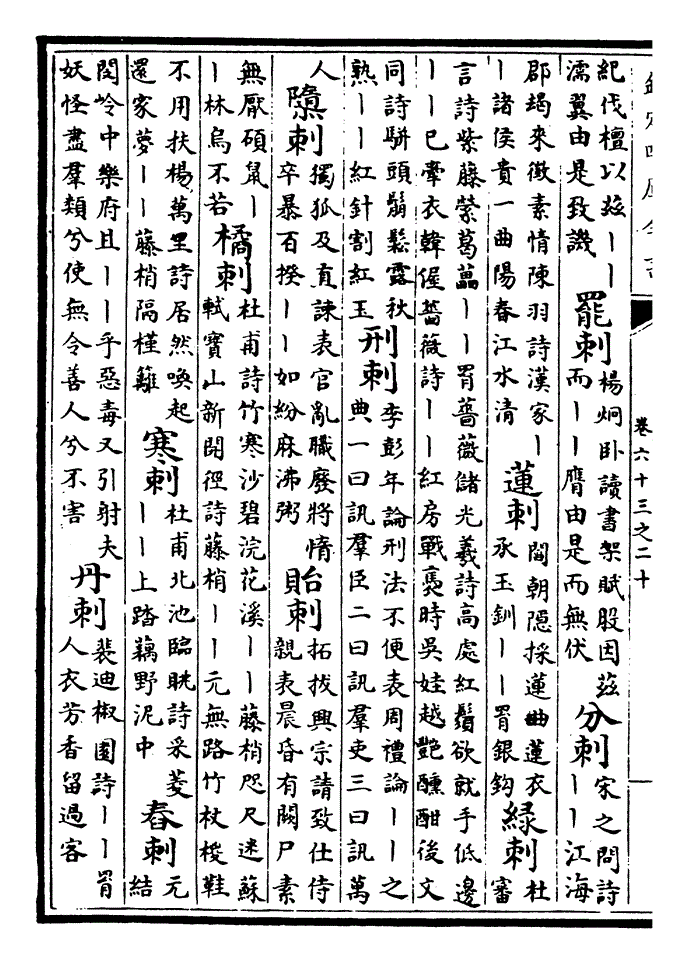 欽定四庫全書
卷六十三之二十
紀伐檀以茲｜｜
濡翼由是致譏
罷刺
楊炯卧讀書架賦股因茲
而｜｜膺由是而無伏
分刺
宋之問詩
｜｜江海
郡朅來徵素情陳羽詩漢家｜
｜諸侯貴一曲陽春江水清
蓮刺
閻朝隱採蓮曲蓮衣
承玉釧｜｜罥銀鈎
緑刺
杜
審
言詩紫藤縈葛藟｜｜罥薔薇儲光羲詩高處紅鬚欲就手低邊
｜｜已牽衣韓偓薔薇詩｜｜紅房戰褭時吳娃越艷醺酣後文
同詩駢頭鬅鬆露秋
熟｜｜紅針割紅玉
刑刺
李彭年論刑法不便表周禮論｜｜之
典一曰訊羣臣二曰訊羣吏三曰訊萬
人
隳刺
獨狐及直諫表官亂職廢將惰
卒暴百揆｜｜如紛麻沸粥
貽刺
拓拔興宗請致仕侍
親表晨昏有闕尸素
無厭碩鼠｜
｜林烏不若
橘刺
杜甫詩竹寒沙碧浣花溪｜｜藤梢咫尺迷蘇
軾寶山新開徑詩藤梢｜｜元無路竹杖椶鞋
不用扶楊萬里詩居然喚起
還家夢｜｜藤梢隔槿籬
寒刺
杜甫北池臨眺詩采菱
｜｜上踏藕野泥中
舂刺
元
結
閔岭中樂府且｜｜乎惡毒又引射夫
妖怪盡羣類兮使無令善人兮不害
丹刺
裴迪椒園詩｜｜罥
人衣芳香留過客